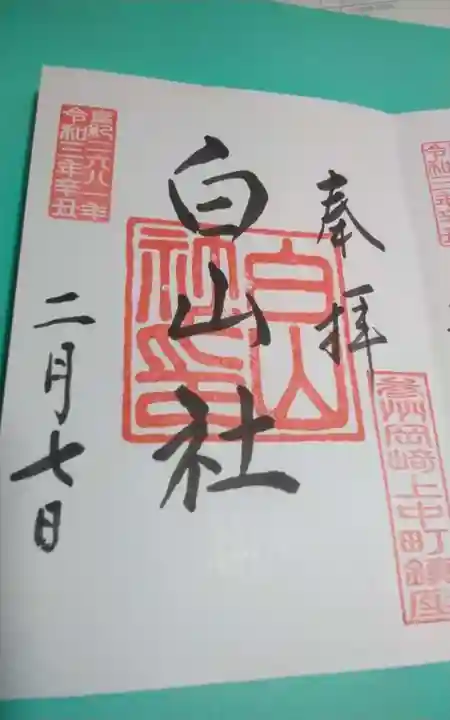 奉拝
参州岡崎上中町鎮座
白山社
白山
社印
皇紀二六八一年
令和三年辛丑
二月七日
令和三年辛丑